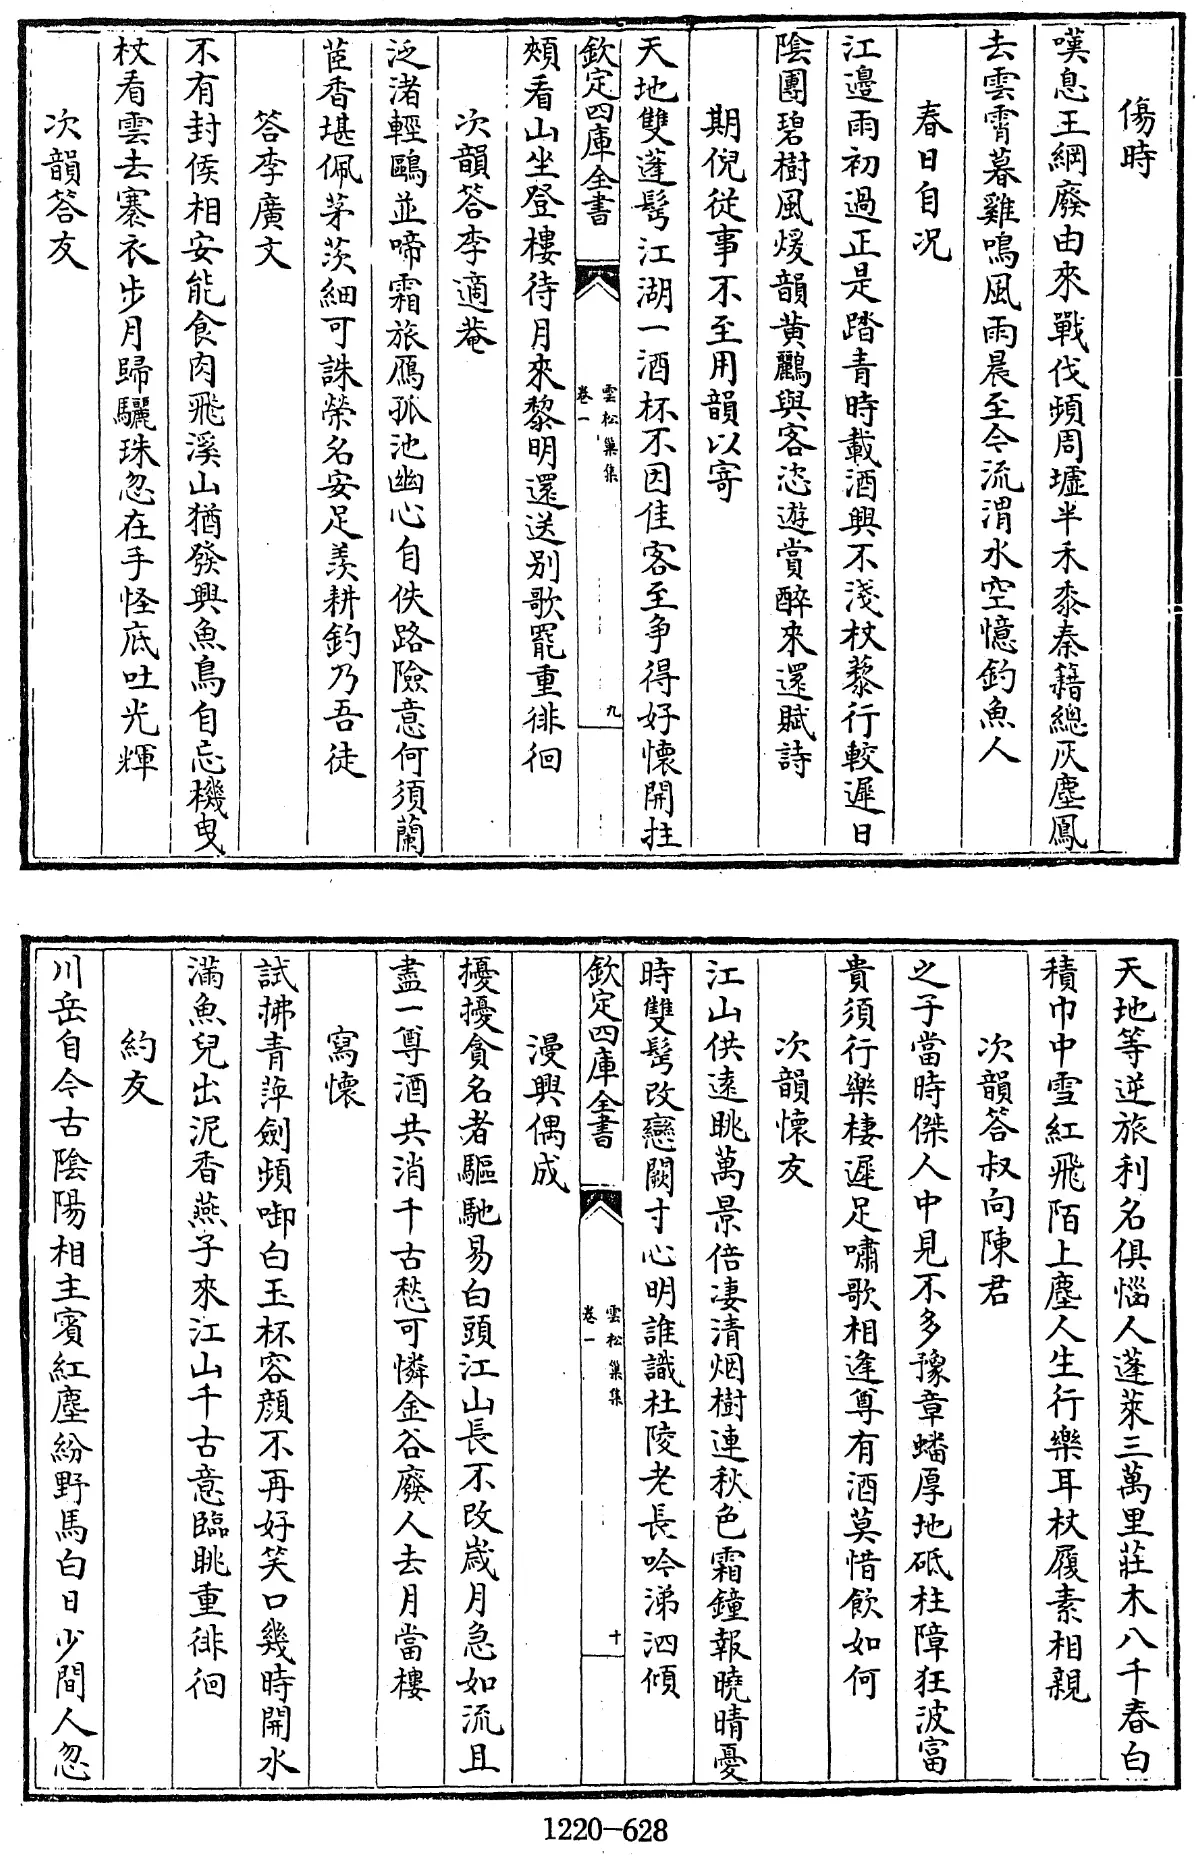 傷時
嘆息王綱廢由來戰伐頻周墟半禾黍秦籍總灰塵鳳
去雲霄暮雞鳴風雨晨至今流渭水空憶釣魚人
春日自况
江邊雨初過正是踏青時載酒興不淺杖藜行較遲日
陰團碧樹風煖韻黄鸝與客恣遊賞醉來還賦詩
期倪從事不至用韻以寄
天地雙蓬髩江湖一酒杯不因佳客至争得好懷開拄
欽定四庫全書
雲松巢集
卷一
九
頰看山坐登樓待月來黎明還送别歌罷重徘徊
次韻答李適菴
泛渚輕鷗並啼霜旅鴈孤池幽心自佚路險意何須蘭
茝香堪佩茅茨細可誅榮名安足羨耕釣乃吾徒
答李廣文
不有封侯相安能食肉飛溪山猶發興魚鳥自忘機曳
杖看雲去褰衣步月歸驪珠忽在手怪底吐光輝
次韻答友
天地等逆旅利名俱惱人蓬萊三萬里莊木八千春白
積巾中雪紅飛陌上塵人生行樂耳杖履素相親
次韻答叔向陳君
之子當時傑人中見不多豫章蟠厚地砥柱障狂波富
貴須行樂棲遲足嘯歌相逢尊有酒莫惜飲如何
次韻懷友
江山供遠眺萬景倍淒清烟樹連秋色霜鐘報曉晴憂
時雙髩改戀闕寸心明誰識杜陵老長吟涕泗傾
欽定四庫全書
雲松巢集
卷一
十
漫興偶成
擾擾貪名者驅馳易白頭江山長不改嵗月急如流且
盡一尊酒共消千古愁可憐金谷廢人去月當樓
寫懷
試拂青萍劍頻啣白玉杯容顔不再好笑口幾時開水
滿魚兒出泥香燕子來江山千古意臨眺重徘徊
約友
川岳自今古陰陽相主賓紅塵紛野馬白日少閒人忽
1220-628